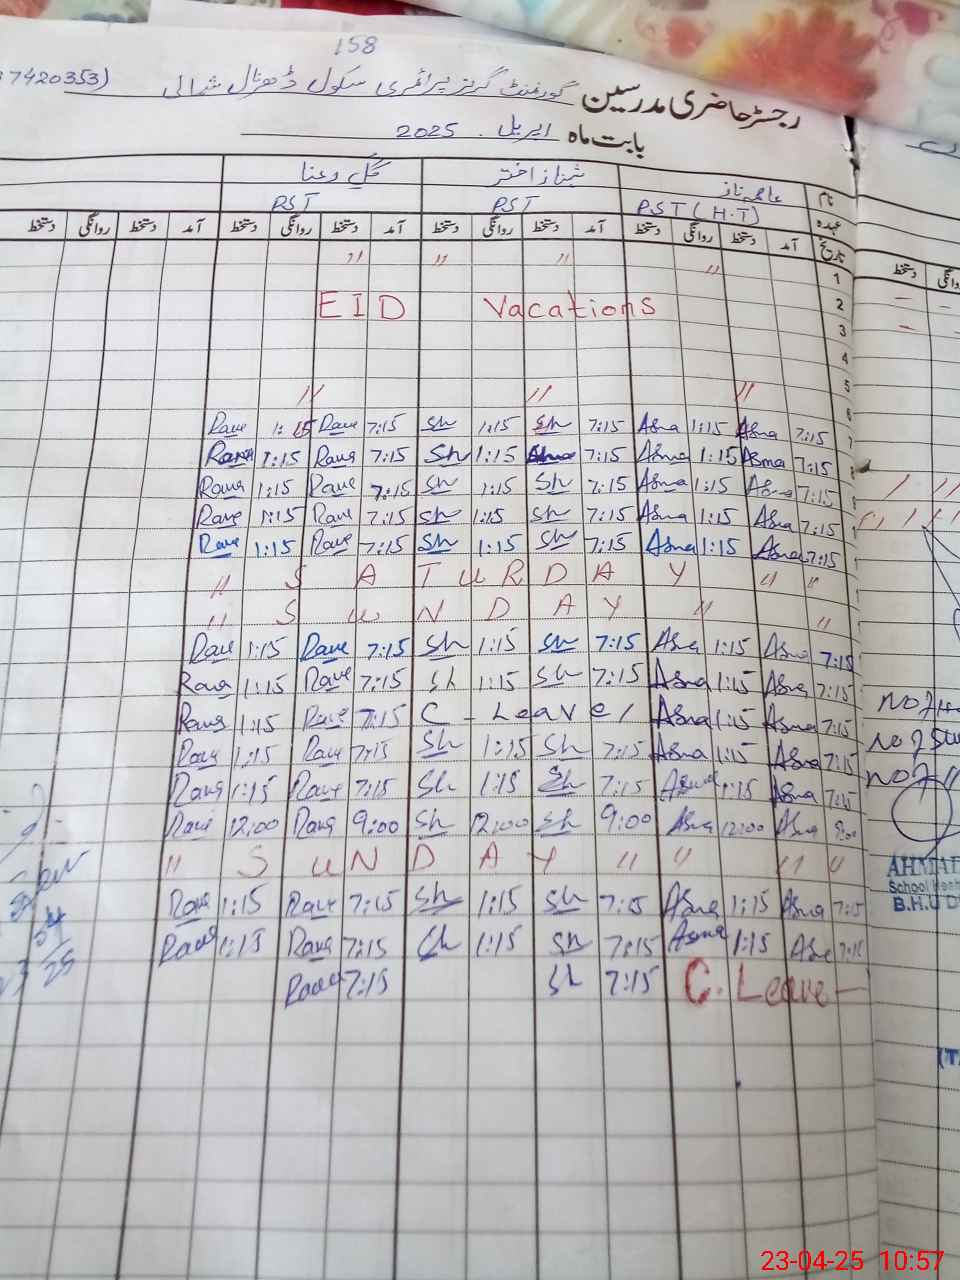 158
رجسٹر حاضری مدرسین گورنمنٹ گرلز پرائمری سکول ڈھنڈل شمالی 7420353)
بابت ماہ اپریل 2025
نام عاصمہ ناز شہناز اختر گل رعنا
عہدہ PST (H.T) PST PST
تاریخ آمد دستخط روانگی دستخط آمد دستخط روانگی دستخط آمد دستخط روانگی دستخط آمد دستخط روانگی دستخط
1 " " " "
2 EID Vacations
3
4
5
6 " " "
7 Rane 1:15 Rane 7:15 Sh 1:15 Sh 7:15 Asma 1:15 Asma 7:15
Rana 1:15 Rana 7:15 Sh 1:15 7:15 Asma 1:15 Asma 7:15
Rana 1:15 Rane 7:15 Sh 1:15 Sh 7:15 Asma 1:15 Asma 7:15
Rane 1:15 Rane 7:15 Sh 1:15 Sh 7:15 Asma 1:15 Asma 7:15
Rane 1:15 Rane 7:15 Sh 1:15 Sh 7:15 Asma 1:15 Asma 7:15
" S A T U R D A Y " "
" S U N D A Y " "
Rane 1:15 Rane 7:15 Sh 1:15 Sh 7:15 Asma 1:15 Asma 7:15
Rana 1:15 Rane 7:15 Sh 1:15 Sh 7:15 Asma 1:15 Asma 7:15
Rana 1:15 Rane 7:15 C - Leave / Asma 1:15 Asma 7:15
Rana 1:15 Rane 7:15 Sh 1:15 Sh 7:15 Asma 1:15 Asma 7:15
Rana 1:15 Rane 7:15 Sh 1:15 Sh 7:15 Asma 1:15 Asma 7:15
Rane 12:00 Rana 9:00 Sh 12:00 Sh 9:00 Asma 12:00 Asma 9:00
" S U N D A Y " " " "
Rana 1:15 Rane 7:15 Sh 1:15 Sh 7:15 Asma 1:15 Asma 7:15
Rana 1:15 Rana 7:15 Sh 1:15 Sh 7:15 Asma 1:15 Asma 7:15
Rana 7:15 Sh 7:15 C. Leave —
دستخط روانگی
No of
No of Stu
No of
AHMAD
School
B.H.U D
23-04-25 10:57